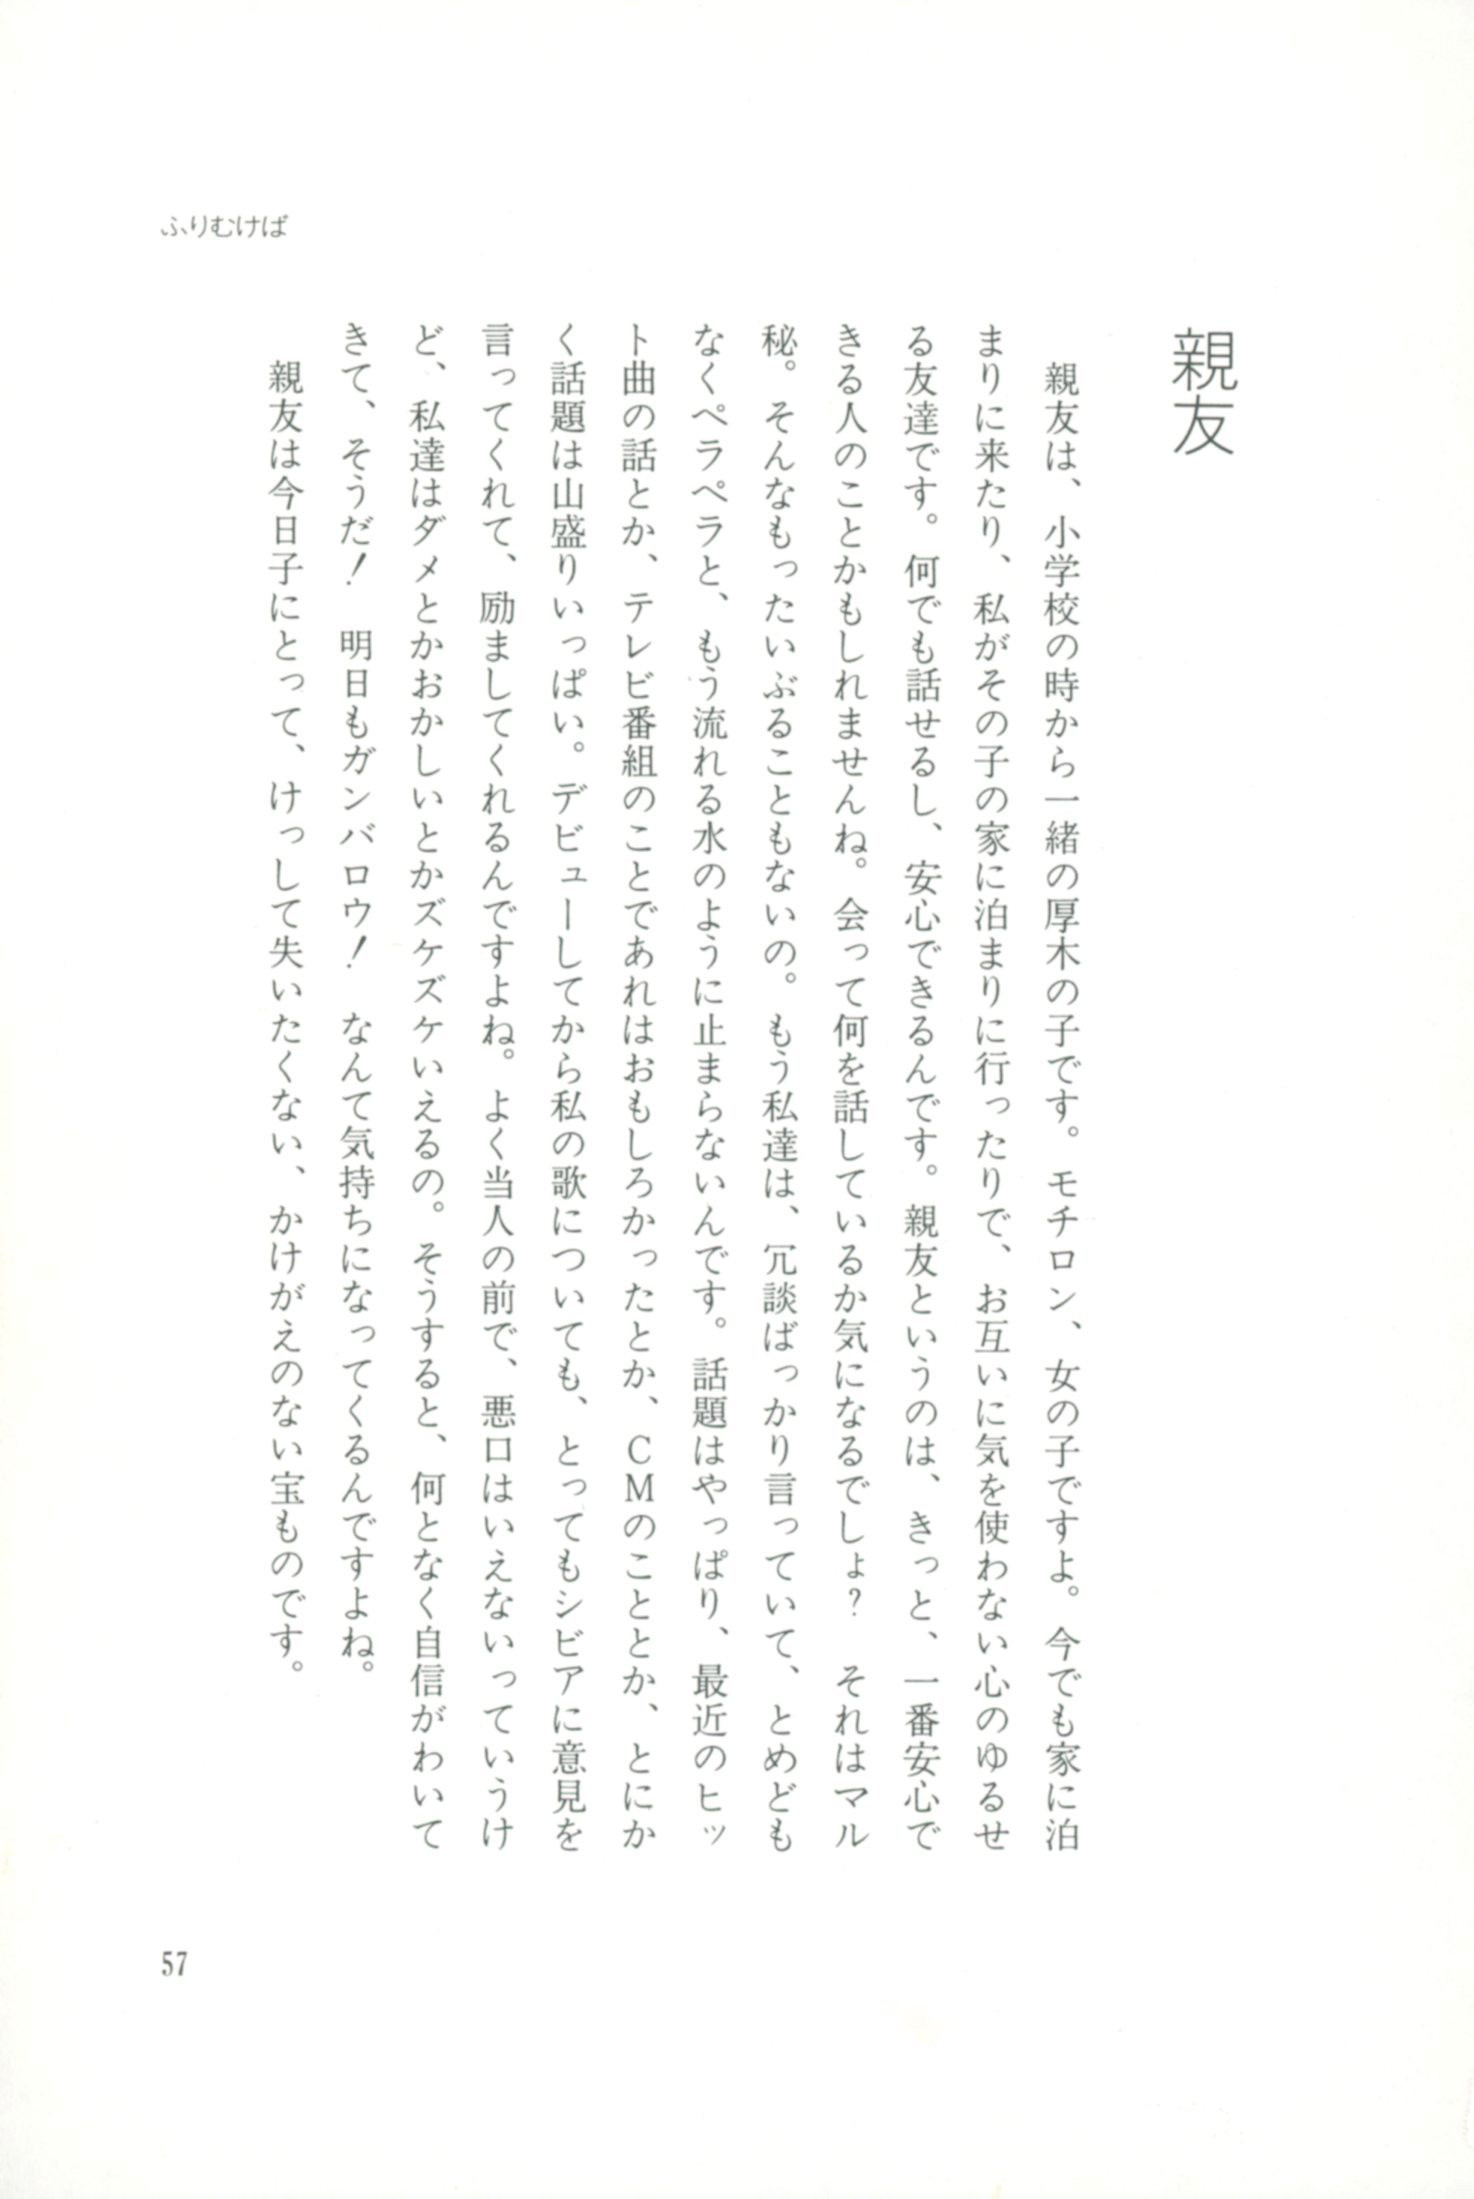 ふりむけば
親友
　親友は、小学校の時から一緒の厚木の子です。モチロン、女の子ですよ。今でも家に泊
まりに来たり、私がその子の家に泊まりに行ったりで、お互いに気を使わない心のゆるせ
る友達です。何でも話せるし、安心できるんです。親友というのは、きっと、一番安心で
きる人のことかもしれませんね。会って何を話しているか気になるでしょ？　それはマル
秘。そんなもったいぶることもないの。もう私達は、冗談ばっかり言っていて、とめども
なくペラペラと、もう流れる水のように止まらないんです。話題はやっぱり、最近のヒッ
ト曲の話とか、テレビ番組のことであれはおもしろかったとか、ＣＭのこととか、とにか
く話題は山盛りいっぱい。デビューしてから私の歌についても、とってもシビアに意見を
言ってくれて、励ましてくれるんですよね。よく当人の前で、悪口はいえないっていうけ
ど、私達はダメとかおかしいとかズケズケいえるの。そうすると、何となく自信がわいて
きて、そうだ！　明日もガンバロウ！　なんて気持ちになってくるんですよね。
　親友は今日子にとって、けっして失いたくない、かけがえのない宝ものです。
57